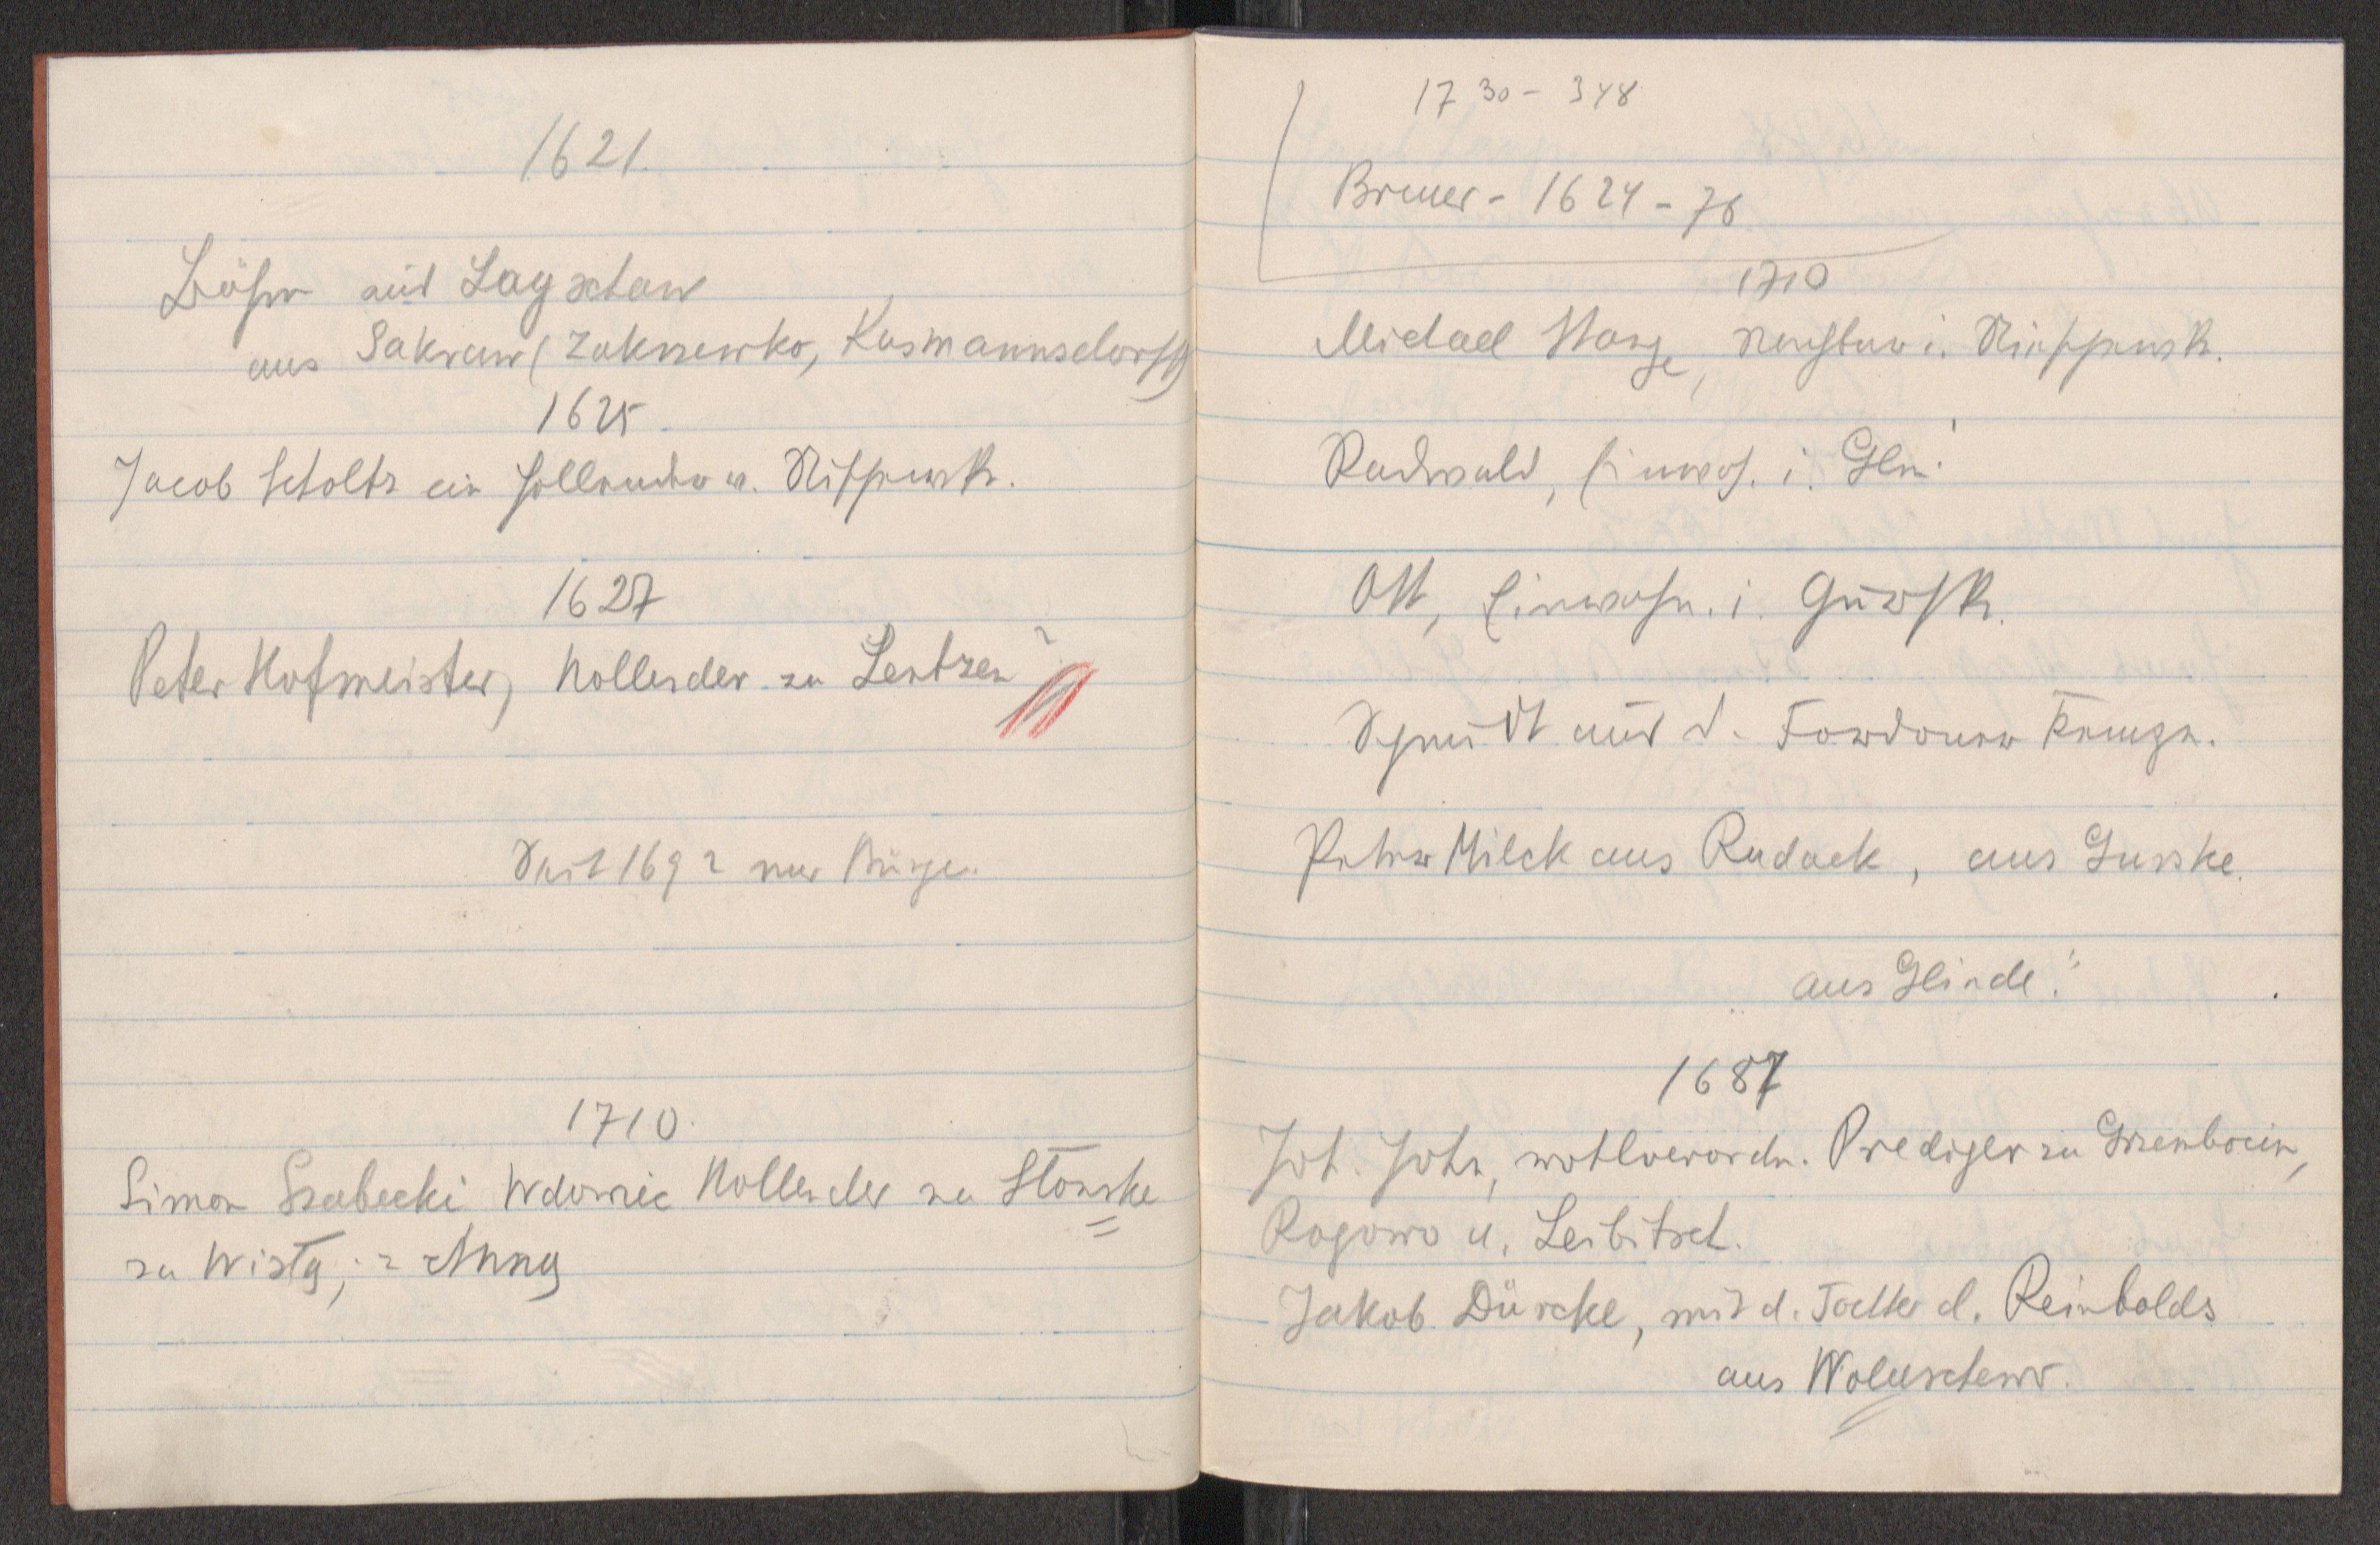 1621.
Böhm aus Lagschaw
aus Sakraw (Zakrzewko, Kusmannsdorf)
1625.
Jacob Scholtz ein Hollender v. Nissewk.
1627
Peter Hofmeister, Hollender zu Lentzen?
Seit 1692 nur Bürger.
1710.
Simon Szubecki Wdowiec Hollender zu Stonske
zu Wistą, z Anną
1730 - 348
Breuer - 1624 - 76
1710
Michael Stange, Nachbar i. Niessewk.
Radwald, Einwoh. i. Gln.
Ott, Einwohn. i. Gursk.
Schmidt aus d. Fordoner Kämpe.
Peter Milck aus Rudack, aus Gurske.
aus Glinde.
1687
Joh. John, wohlverordn. Prediger zu Grzembocin,
Rogowo u. Leibitsch.
Jakob Dürcke, mit d. Tochter d. Reinbolds
aus Woluschewo.